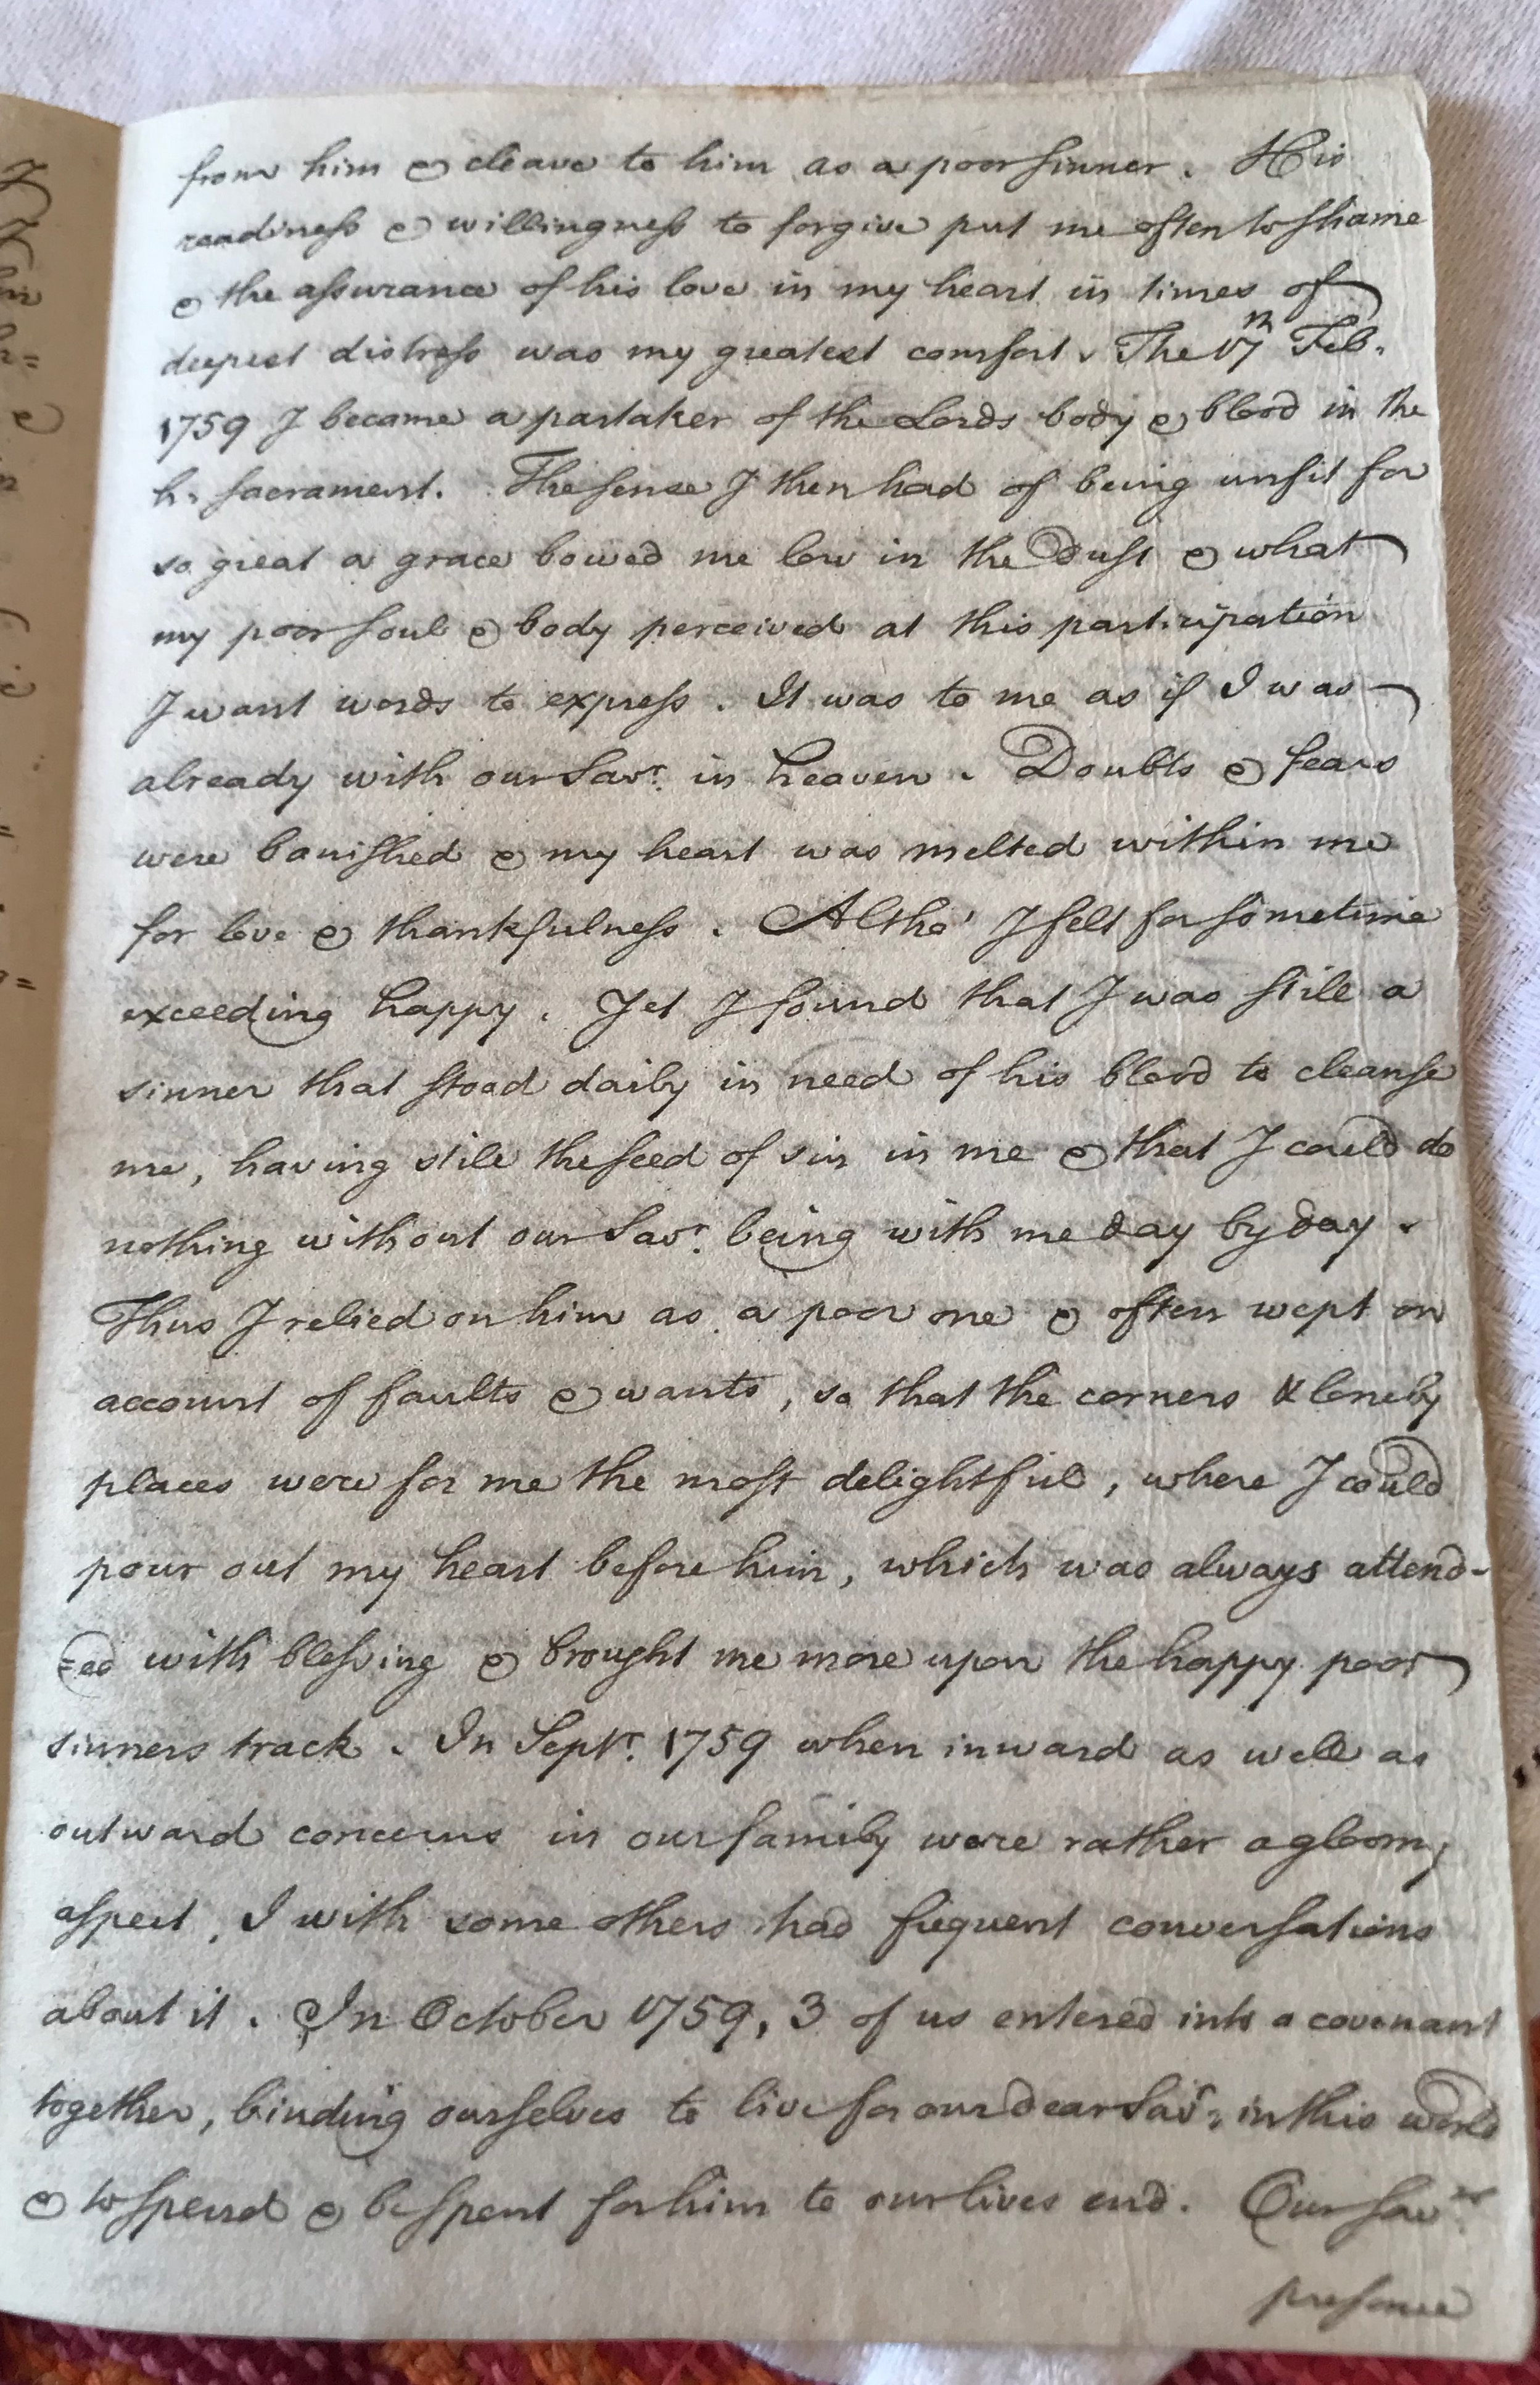 from him & cleave to him as a poor sinner. His
readiness & willingness to forgive put me often to shame
& the assurance of his love in my heart in times of
deepest distress was my greatest comfort. The 17th Feb.
1759 I became a partaker of the Lords body & blood in the
h. sacrament. The sense I then had of being unfit for
so great a grace bowed me low in the dust & what
my poor soul & body perceived at this participation
I want words to express. It was to me as if I was
already with our Savr. in heaven. Doubts & fears
were banished & my heart was melted within me
for love & thankfulness. Altho' I felt for sometime
exceeding happy. Yet I found that I was still a
sinner that stood daily in need of his blood to cleanse
me, having still the seed of sin in me & that I could do
nothing without our Savr. being with me day by day.
Thus I relied on him as a poor one & often wept on
account of faults & wants, so that the corners & lonely
places were for me the most delightful, where I could
pour out my heart before him, which was always attend-
=ed with blessing & brought me more upon the happy poor
sinners track. In Septr. 1759 when inward as well as
outward concerns in our family wore rather a gloomy
aspect, I with some others had frequent conversations
about it. In October 1759, 3 of us entered into a covenant
together, binding ourselves to live for our dear Savr. in this world
& to spend & be spent for him to our lives end. Our Savrs
presence